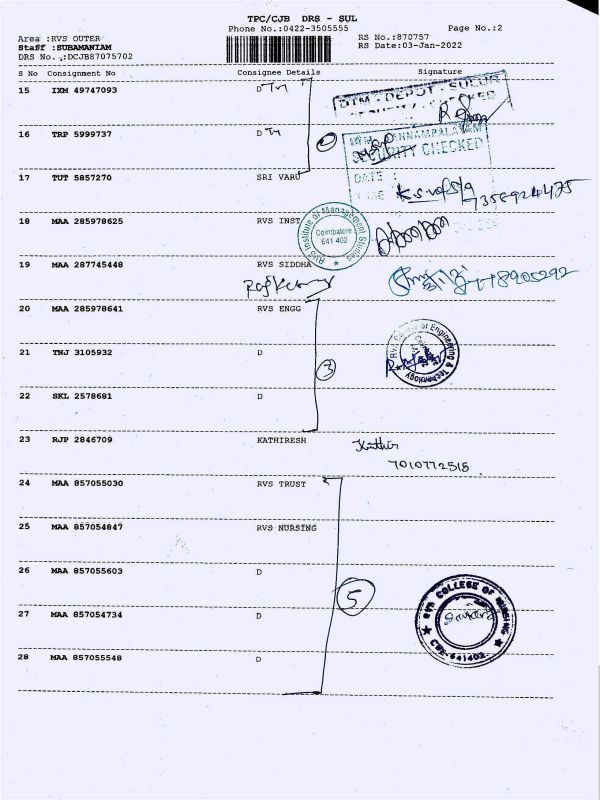 TPC/CJB DRS - SUL
Phone No.:0422-3505555
Page No.:2
Area :RVS OUTER
RS No.:870757
Staff :SUBAMANIAM
RS Date:03-Jan-2022
DRS No.,:DCJB87075702
S No Consignment No Consignee Details Signature
15 IXM 49747093 D
DTM - DEPOT - SULUR
16 TRP 5999737 D
SECURITY CHECKED
DATE :
17 TUT 5857270 SRI VARU
7356924475
18 MAA 285978625 RVS INST
RVS Institute of Management Studies
Coimbatore
641 402
19 MAA 287745448 RVS SIDDHA
Rajkumar
20 MAA 285978641 RVS ENGG
RVS College of Engineering & Technology
21 TNJ 3105932 D
3
22 SKL 2578681 D
23 RJP 2846709 KATHIRESH
Kathir
7010772515
24 MAA 857055030 RVS TRUST
25 MAA 857054847 RVS NURSING
26 MAA 857055603 D
5
RVS COLLEGE OF NURSING
CBE-641402
27 MAA 857054734 D
28 MAA 857055548 D